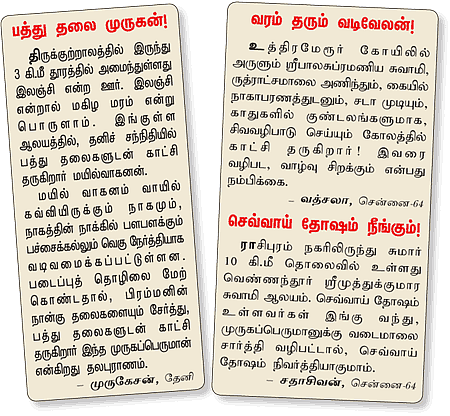 பத்து தலை முருகன்!
திருக்குற்றாலத்தில் இருந்து
3 கி.மீ தூரத்தில் அமைந்துள்ளது
இலஞ்சி என்ற ஊர். இலஞ்சி
என்றால் மகிழ மரம் என்று
பொருளாம். இங்குள்ள
ஆலயத்தில், தனிச் சந்நிதியில்
பத்து தலைகளுடன் காட்சி
தருகிறார் மயில்வாகனன்.
மயில் வாகனம் வாயில்
கவ்வியிருக்கும் நாகமும்,
நாகத்தின் நாக்கில் பளபளக்கும்
பச்சைக்கல்லும் வெகு நேர்த்தியாக
வடிவமைக்கப்பட்டுள்ளன.
படைப்புத் தொழிலை மேற்
கொண்டதால், பிரம்மனின்
நான்கு தலைகளையும் சேர்த்து,
பத்து தலைகளுடன் காட்சி
தருகிறார் இந்த முருகப்பெருமான்
என்கிறது தலபுராணம்.
– முருகேசன், தேனி
வரம் தரும் வடிவேலன்!
உத்திரமேரூர் கோயிலில்
அருளும் ஸ்ரீபாலசுப்ரமணிய சுவாமி,
ருத்ராட்சமாலை அணிந்தும், கையில்
நாகாபரணத்துடனும், சடா முடியும்,
காதுகளில் குண்டலங்களுமாக,
சிவவழிபாடு செய்யும் கோலத்தில்
காட்சி தருகிறார்! இவரை
வழிபட, வாழ்வு சிறக்கும் என்பது
நம்பிக்கை.
– வத்சலா, சென்னை-64
செவ்வாய் தோஷம் நீங்கும்!
ராசிபுரம் நகரிலிருந்து சுமார்
10 கி.மீ தொலைவில் உள்ளது
வெண்ணந்தூர் ஸ்ரீமுத்துக்குமார
சுவாமி ஆலயம். செவ்வாய் தோஷம்
உள்ளவர்கள் இங்கு வந்து,
முருகப்பெருமானுக்கு வடைமாலை
சார்த்தி வழிபட்டால், செவ்வாய்
தோஷம் நிவர்த்தியாகுமாம்.
– சதாசிவன், சென்னை-64